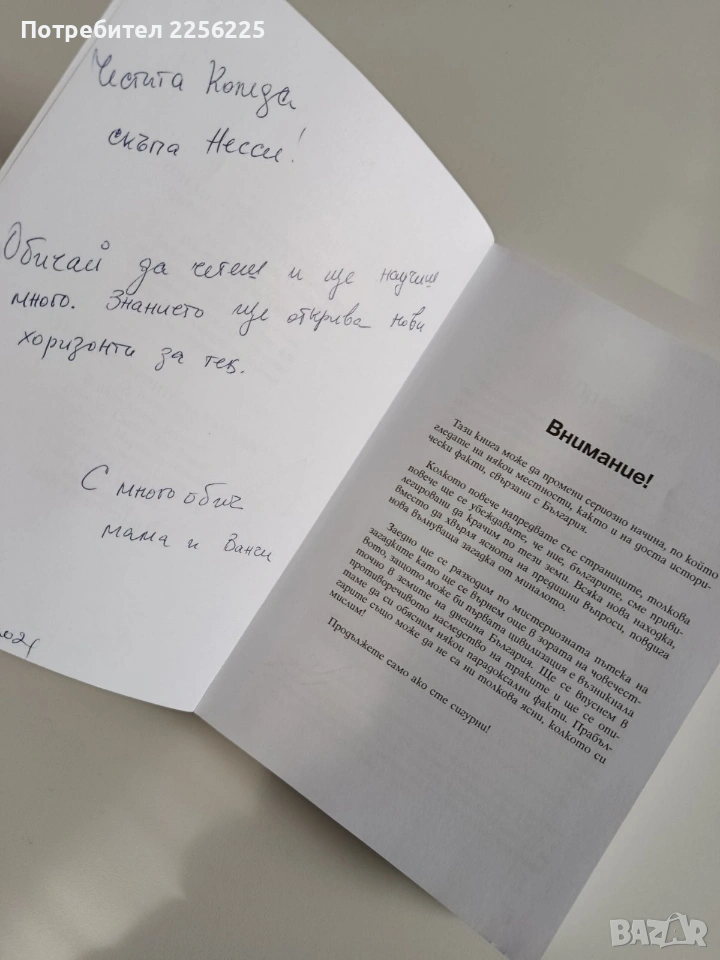 Потребител 2256225
Честита Коледа
скъпа Несси!
Обичай да четеш и ще научиш
много. Знанието ще открива нови
хоризонти за теб.
С много обич
мама и Ванси
Внимание!
Тази книга може да промени сериозно начина, по който
гледате на някои местности, както и на доста истори-
чески факти, свързани с България.
Колкото повече напредвате със страниците, толкова
повече ще се убеждавате, че ние, българите, сме приви-
легировани да крачим по тези земи. Всяка нова находка,
вместо да хвърля яснота на предишни въпроси, повдига
нова вълнуваща загадка от миналото.
Заедно ще се разходим по мистериозната пътека на
загадките като ще се върнем още в зората на човечест-
вото, защото може би първата цивилизация е възникнала
точно в земите на днешна България. Ще се впуснем в
противоречивото наследство на траките и ще се опи-
таме да си обясним някои парадоксални факти. Прабъл-
гарите също може да не са ни толкова ясни, колкото си
мислим!
Продължете само ако сте сигурни!
BAZAR